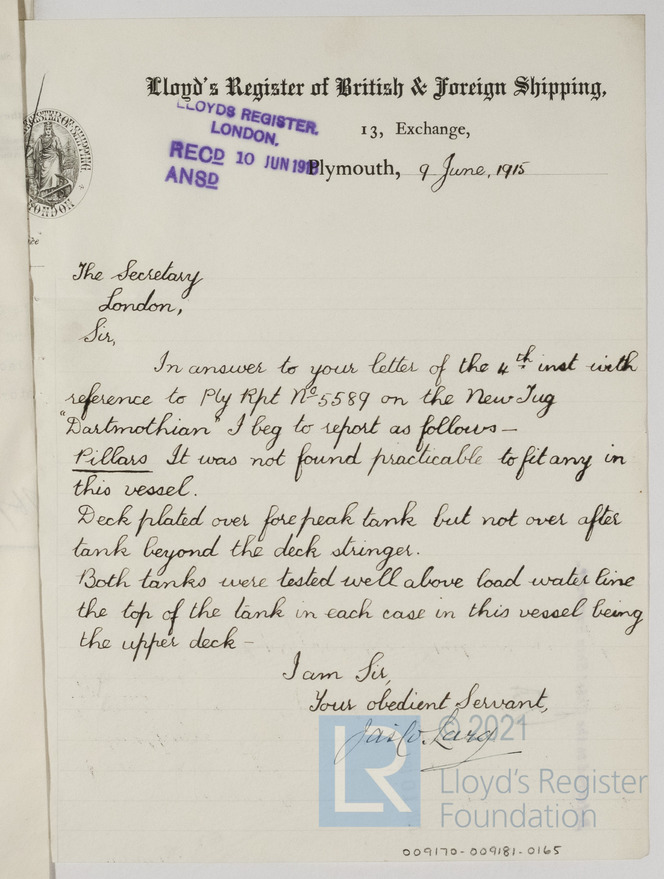 Lloyd's Register of British & Foreign Shipping,
LLOYDS REGISTER.
LONDON.
RECD 10 JUN 1915
ANSD
13, Exchange,
Plymouth, 9 June, 1915
LONDON
The Secretary
London,
Sir,
In answer to your letter of the 4th inst with
reference to Ply Rpt No 5589 on the New Tug
"Dartmothian" I beg to report as follows—
Pillars It was not found practicable to fit any in
this vessel.
Deck plated over forepeak tank but not over after
tank beyond the deck stringer.
Both tanks were tested well above load water line
the top of the tank in each case in this vessel being
the upper deck —
I am Sir,
Your obedient Servant,
LR
© 2021
Lloyd's Register
Foundation
009170-009181-0165